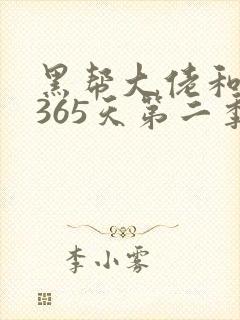 黑帮大佬和
365天第二季
李小雾